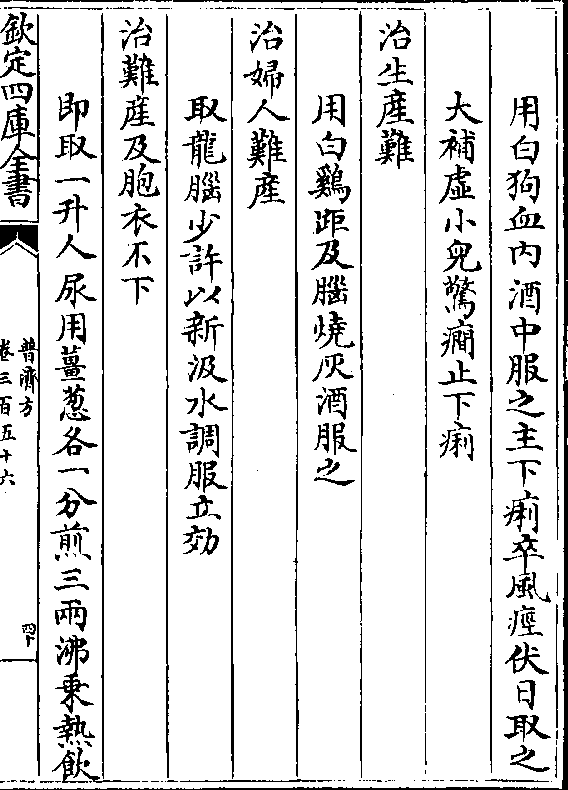 用白狗血内酒中服之主下痢卒風痙伏日取之
大補虚小兒驚癇止下痢
治生産難
用白鷄距及腦燒灰酒服之
治婦人難産
取龍腦少許以新汲水調服立効
治難産及胞衣不下
即取一升人尿用薑葱各一分煎三兩沸乗熱飲
欽定四庫全書
普濟方
卷三百五十六